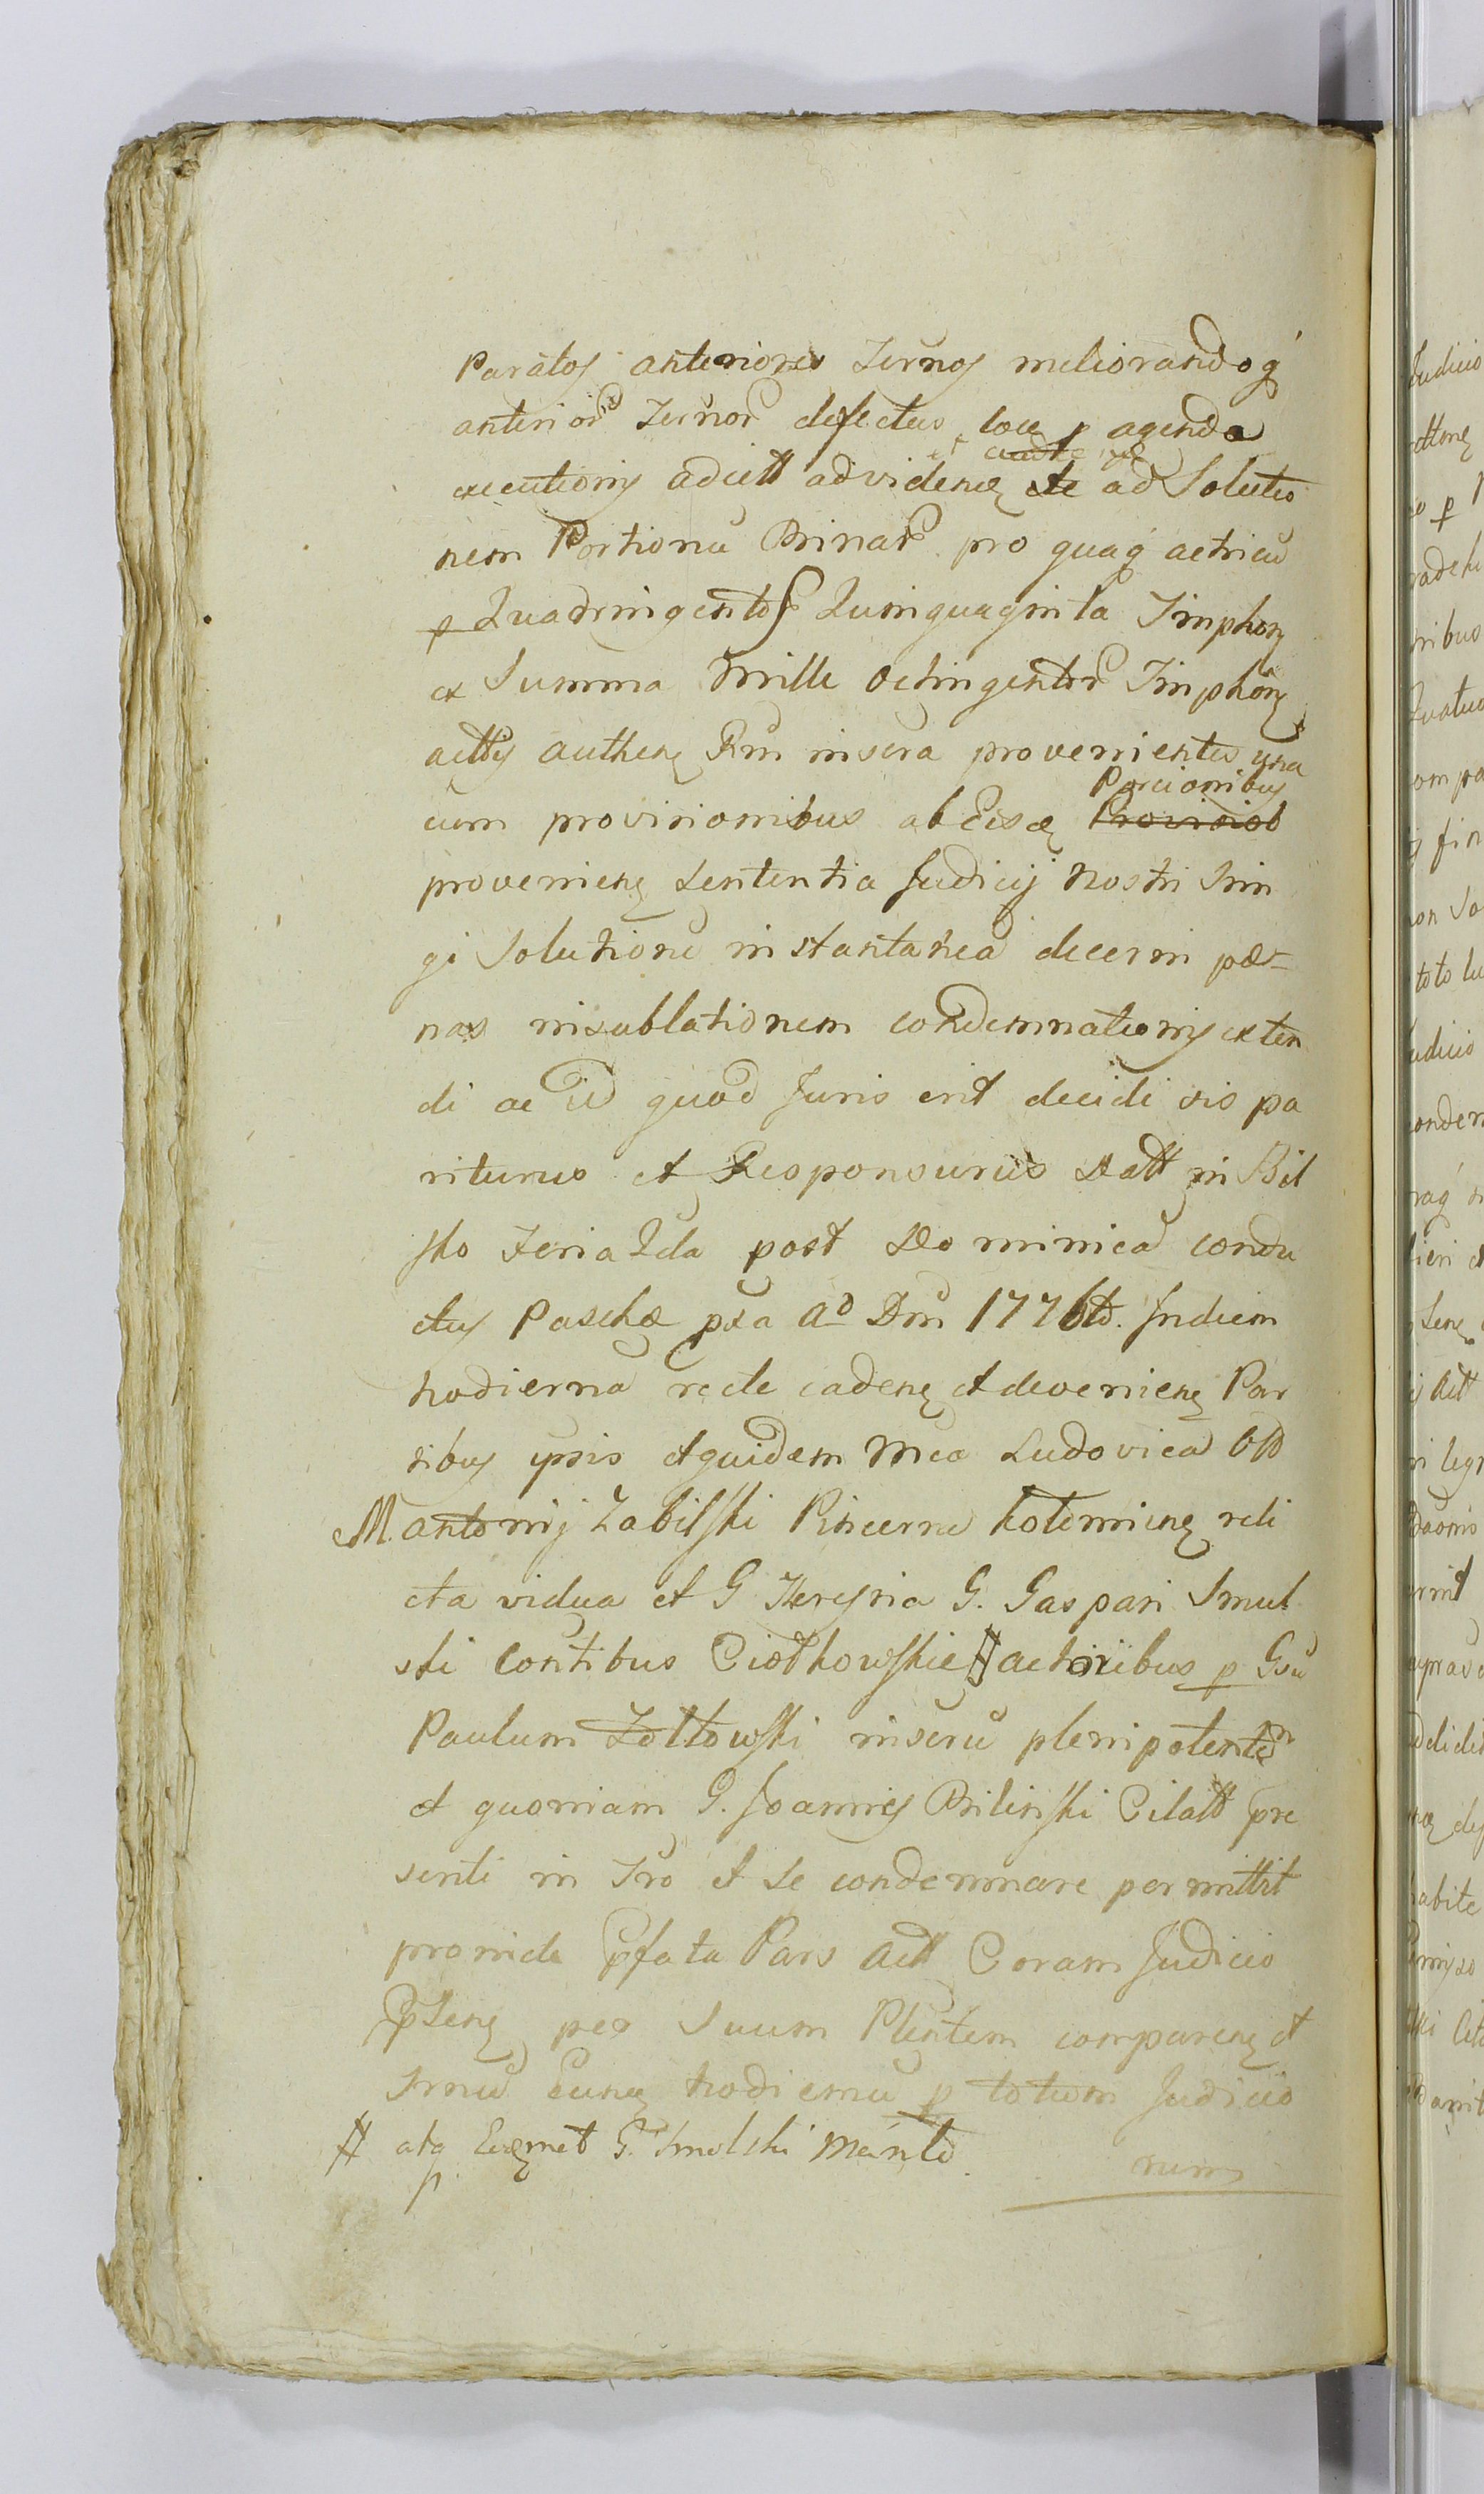 Paratos anteriores Terñoș meliorandoq́
anterior Terñor defectus loca p agenda
executionis adcitt ad videneș et ad Solutio
nem Portionũ Binar pro quaq́ actricũ
p Quadringentos Quinquaginta Timphorș
ex Summa Mille Octingentor Timphorș
acttis autheneș Rm insera provenientes una
Porcionibus
cum provisionibus ab Eisdș
provenieneș Sententia Judicij Nostri Srin
gi Solutionẽ instantaneã decerni pœ-
nas insublationem condemnationis exten
di ac id quod Juris erit decidi sis pa
riturus et Responsurus Datt in Biel
sko Feria 2da post Dominicã condu
ctus Paschæ pxa Aº Dni 1776to. Indiem
hodiernã recte cadeneș et devenieneș Par
tibus ipsis et quidem Mca Ludovica Olo
M. Antonij Zabilski Pincernæ Koloinieneș reli
cta vidua et G Theresia G. Gaspari Smul
ski Contibus Ciołkowskie # actoribus p Gsũ
Paulum Żołtowski inserũ plenipotentem
et quoniam G. Joannes Bilinski Citatt pre
senti in Tro et se condemnare permittit
proinde Pfata Pars Actt Coram Judicio
Pseneș per Suum Plentem compareneș et
Trnũ Euneș hodiernũ p totum Judicio
# atq G. Smolski
rum